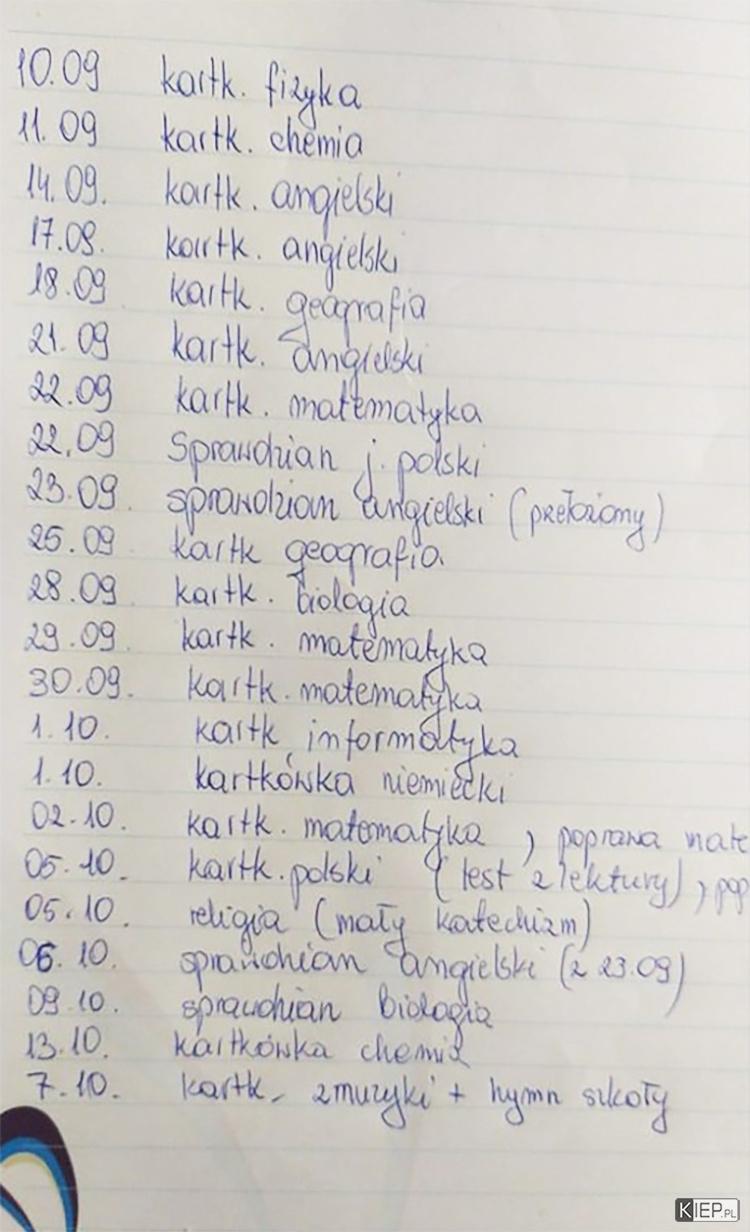 10.09 kartk. fizyka
11.09 kartk. chemia
14.09. kartk. angielski
17.09. kartk. angielski
18.09 kartk. geografia
21.09 kartk. angielski
22.09 kartk. matematyka
22.09 Sprawdzian j. polski
23.09. sprawdzian angielski (przełożony)
25.09 kartk geografia
28.09 kartk. biologia
29.09. kartk. matematyka
30.09. kartk. matematyka
1.10. kartk. informatyka
1.10. kartkówka niemiecki
02.10. kartk. matematyka, poprawa mate
05.10. kartk. polski (test z lektury), pop
05.10. religia (mały katechizm)
06.10. sprawdzian angielski (z 23.09)
09.10. sprawdzian biologia
13.10. kartkówka chemia
7.10. kartk - z muzyki + hymn szkoły
KIEP.PL